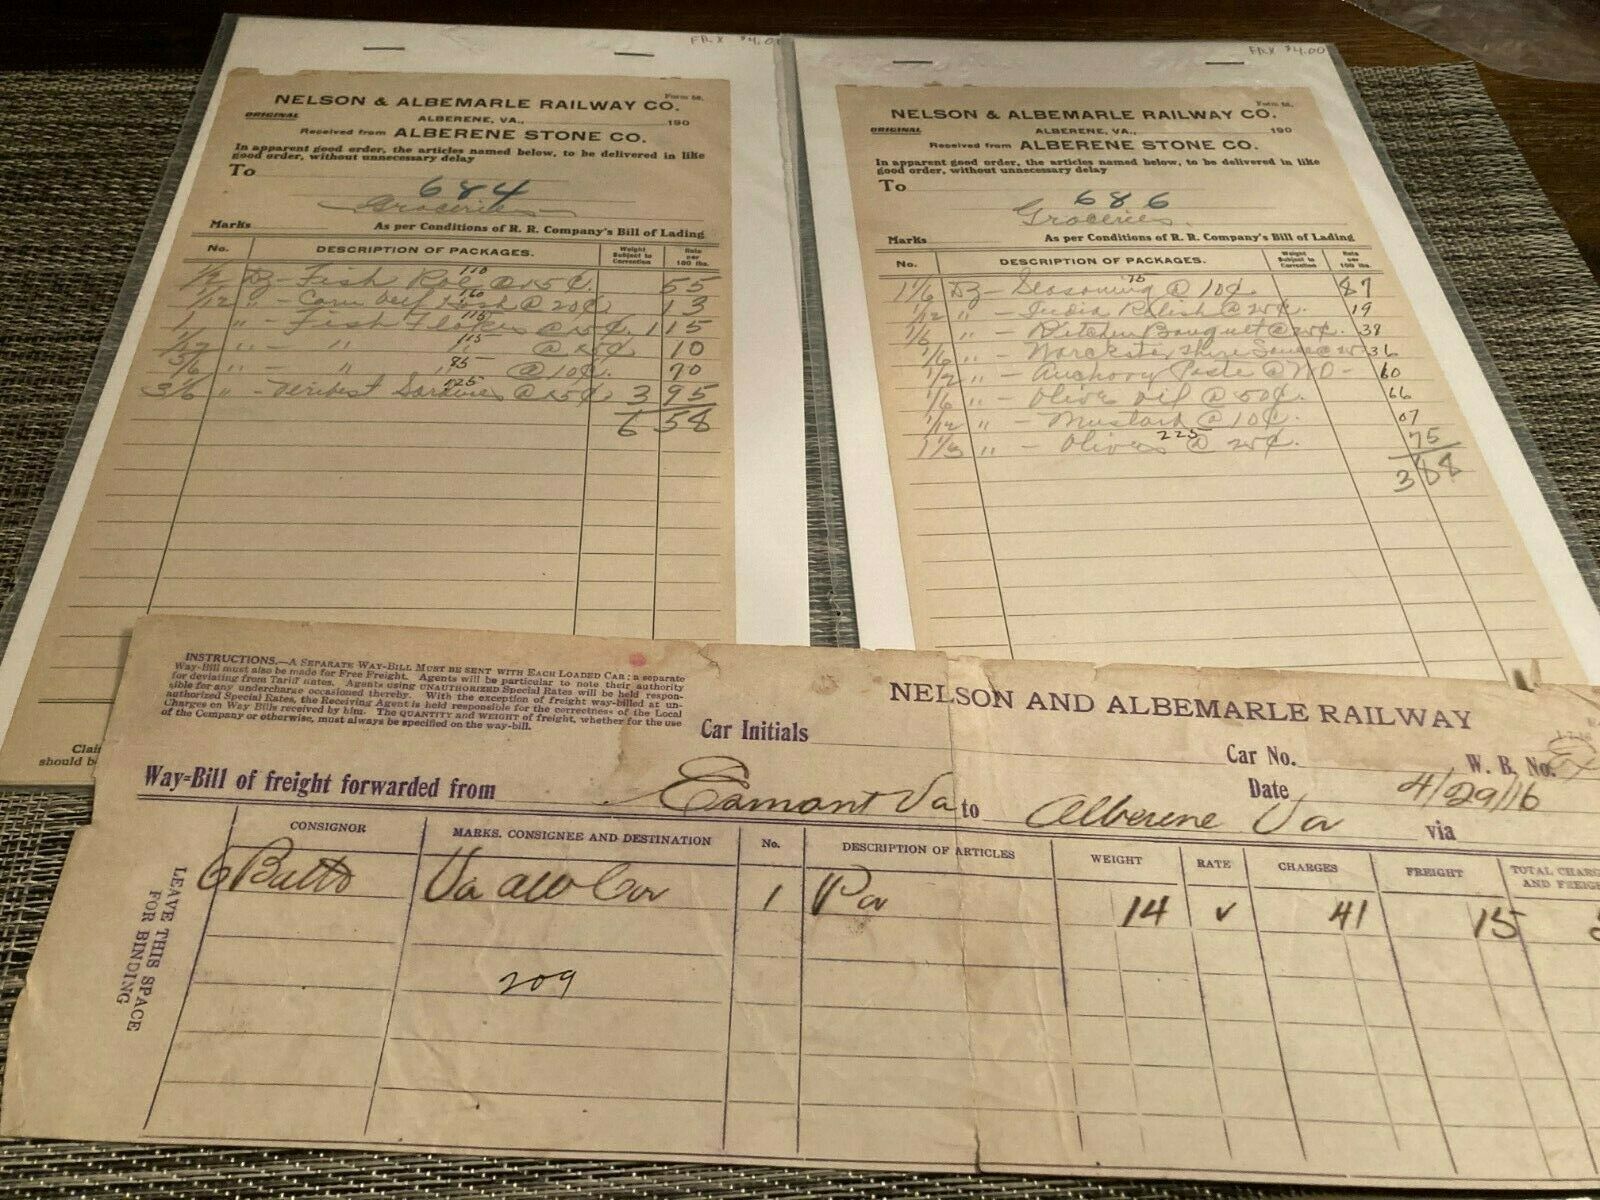 FRX $4.0
NELSON & ALBEMARLE RAILWAY CO.
Form 58.
ORIGINAL
ALBERENE, VA., 190
Received from ALBERENE STONE CO.
In apparent good order, the articles named below, to be delivered in like
good order, without unnecessary delay
To
684
Groceries
Marks As per Conditions of R. R. Company's Bill of Lading
No. DESCRIPTION OF PACKAGES. Weight Subject to Correction Rate per 100 lbs.
1/2 Dz - Fish Roe 110 @ 15¢. 55
1/12 " - Corn Beef Hash 160 @ 20¢ 13
1 " - Fish Flakes 115 @ 15¢. 1 15
1/12 " - " " 115 @ 15¢ 10
5/6 " - " " 85 @ 10¢. 70
3 1/6 " - Veribest Sardines 125 @ 15¢ 3 95
6 58
Clai
should b
FRX $4.00
NELSON & ALBEMARLE RAILWAY CO.
Form 58.
ORIGINAL
ALBERENE, VA., 190
Received from ALBERENE STONE CO.
In apparent good order, the articles named below, to be delivered in like
good order, without unnecessary delay
To
686
Groceries
Marks As per Conditions of R. R. Company's Bill of Lading
No. DESCRIPTION OF PACKAGES. Weight Subject to Correction Rate per 100 lbs.
1 1/6 Dz - Seasoning 75 @ 10¢. 87
1/12 " - India Relish @ 20¢. 19
1/6 " - Kitchen Bouquet @ 20¢. 38
1/6 " - Worckster shire Sauce @ 36
1/2 " - Anchovy Paste @ 60
1/6 " - Olive Oil @ 50¢. 66
1/12 " - Mustard @ 10¢. 07
1/3 " - Olives 225 @ 20¢. 75
3 88
INSTRUCTIONS.—A SEPARATE WAY-BILL MUST BE SENT WITH EACH LOADED CAR: a separate
Way-Bill must also be made for Free Freight. Agents will be particular to note their authority
for deviating from Tariff rates. Agents using UNAUTHORIZED Special Rates will be held respon-
sible for any undercharge occasioned thereby. With the exception of freight way-billed at un-
authorized Special Rates, the Receiving Agent is held responsible for the correctness of the Local
Charges on Way Bills received by him. The QUANTITY and WEIGHT of freight, whether for the use
of the Company or otherwise, must always be specified on the way-bill.
NELSON AND ALBEMARLE RAILWAY
Car Initials Car No. W. B. No.
Way-Bill of freight forwarded from Esmont Va to Alberene Va Date 4/29/16
via
CONSIGNOR MARKS, CONSIGNEE AND DESTINATION No. DESCRIPTION OF ARTICLES WEIGHT RATE CHARGES FREIGHT TOTAL CHARG
AND FREIG
Butto Va 1 Pa 14 ✓ 41 15
209
LEAVE THIS SPACE
FOR BINDING